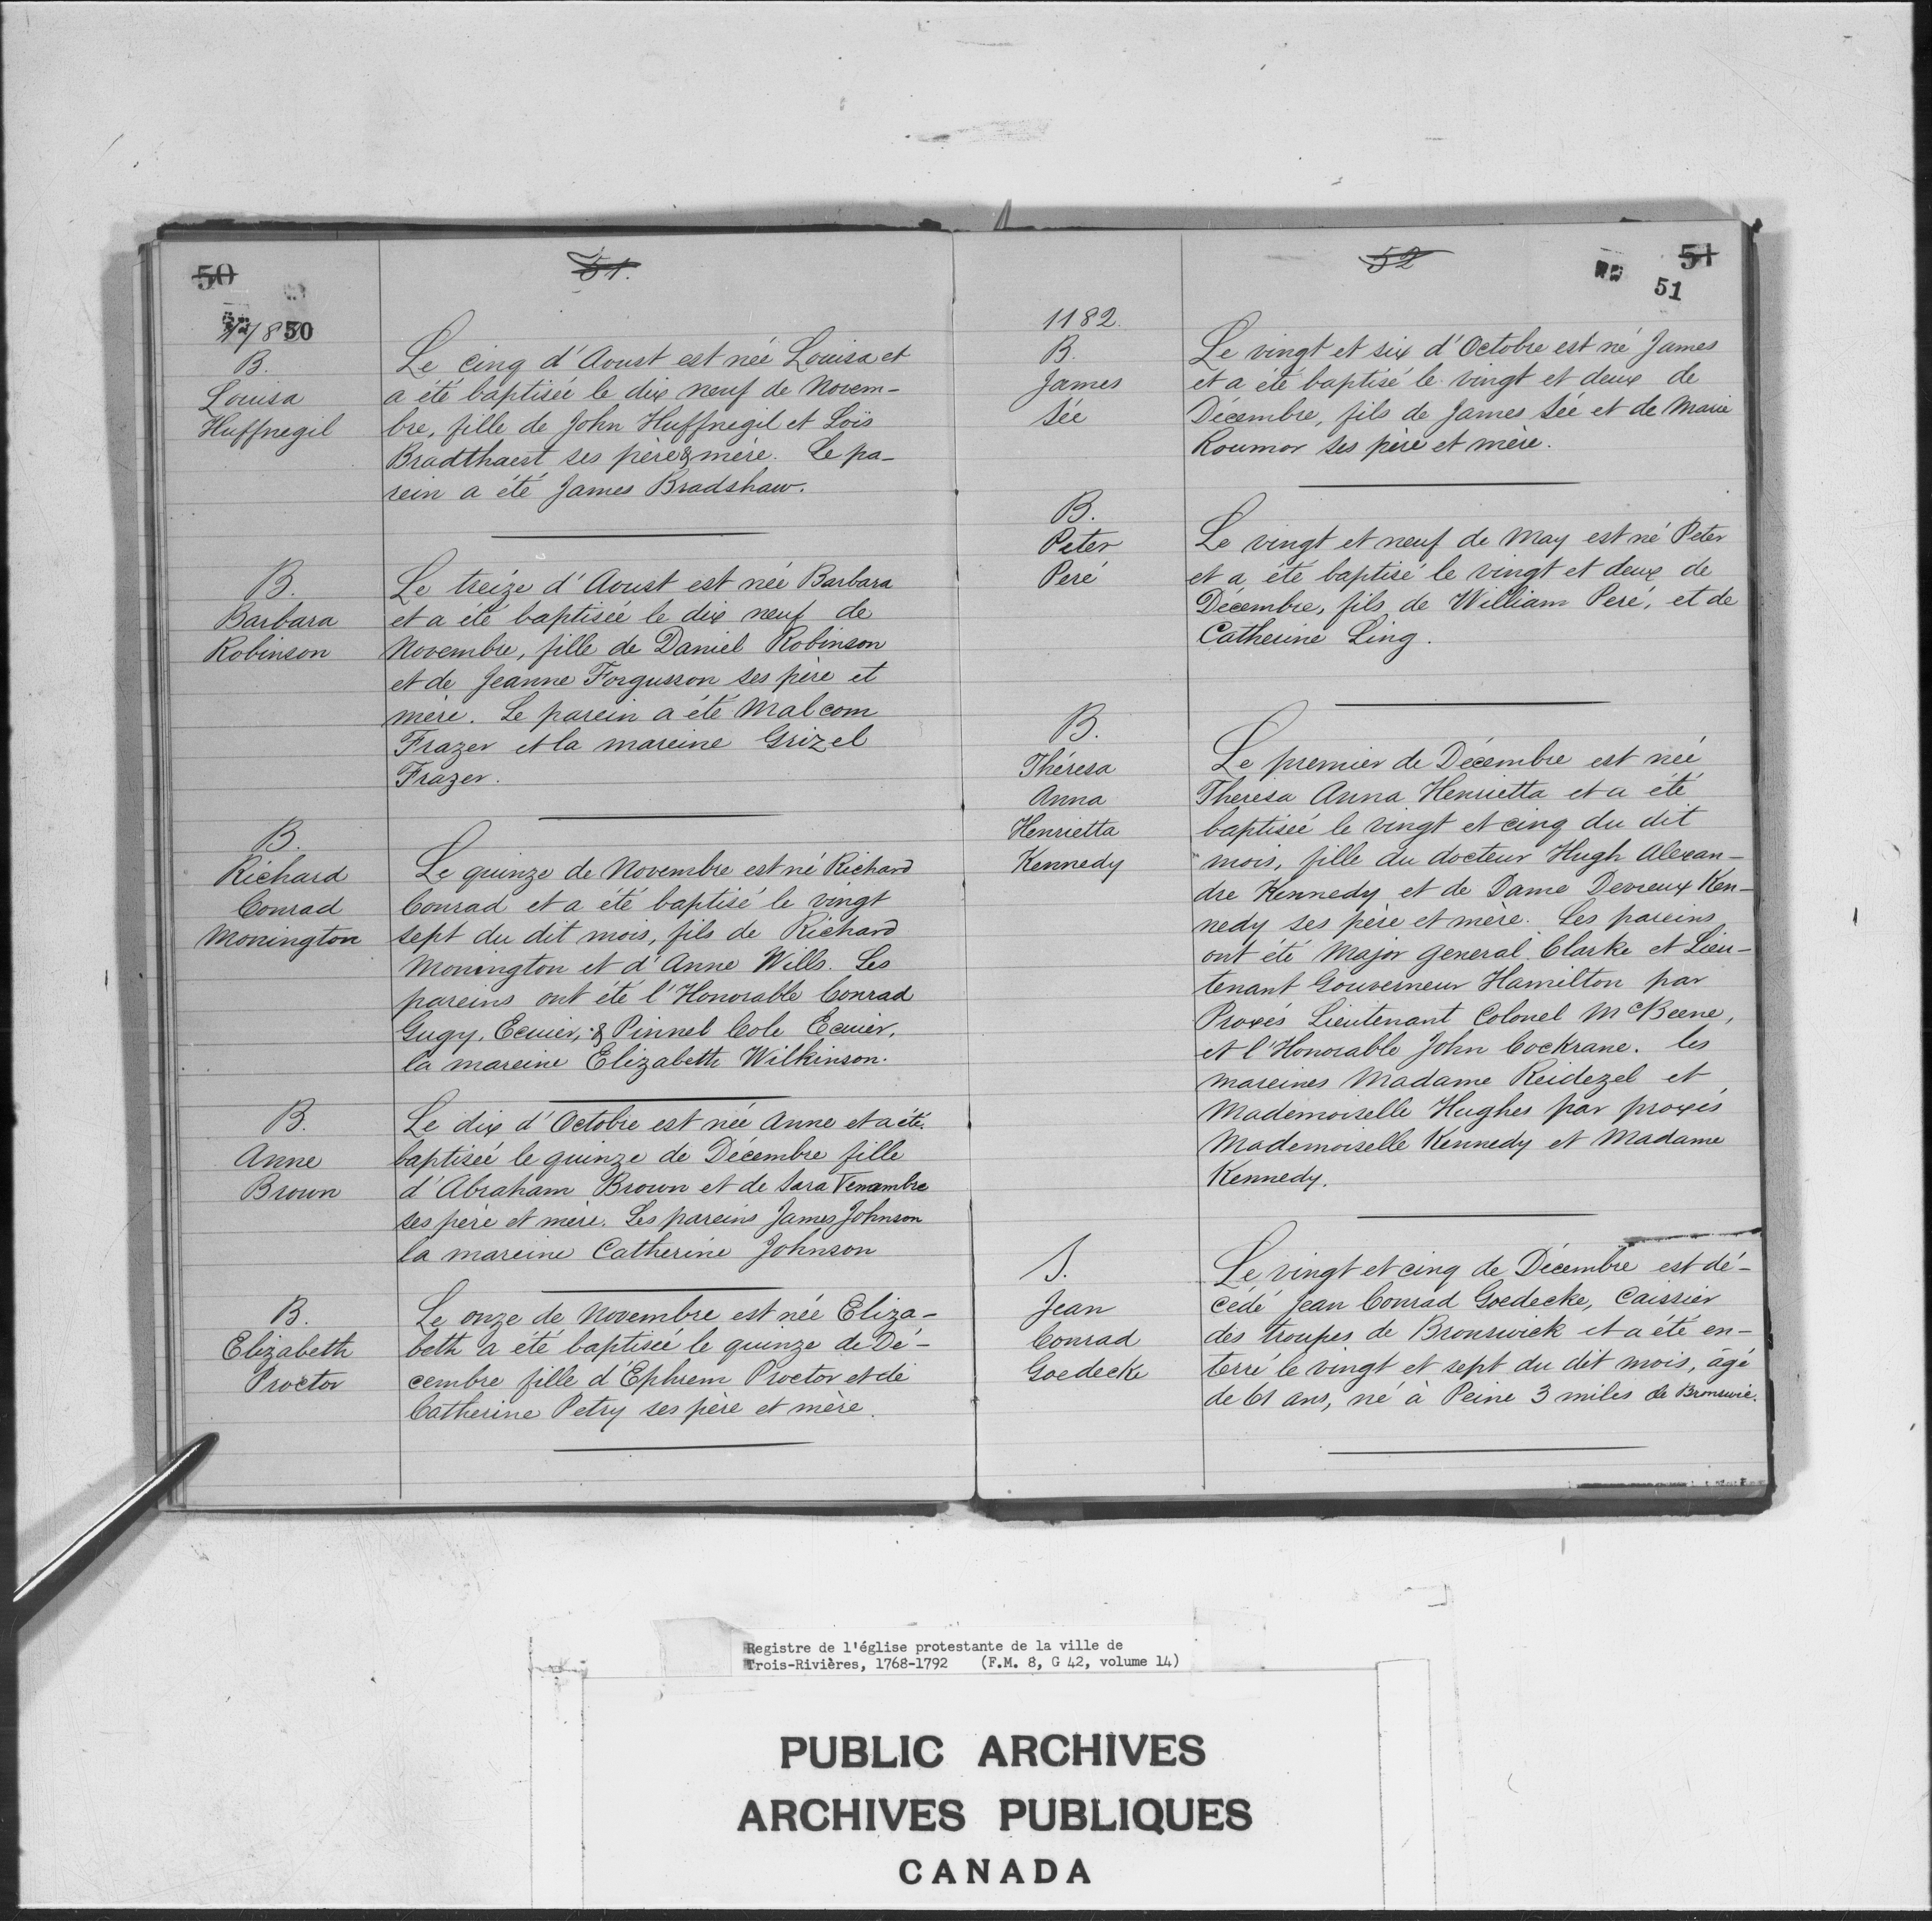 50
51.
1782
50
B.
Louisa
Huffnegil
Le cinq d'Aoust est née Louisa et
a été baptisée le dix neuf de Novem-
bre, fille de John Huffnegil et Loïs
Bradthaest ses père & mère. Le pa-
rein a été James Bradshaw.
B.
Barbara
Robinson
Le treize d'Aoust est née Barbara
et a été baptisée le dix neuf de
Novembre, fille de Daniel Robinson
et de Jeanne Forgusson ses père et
mère. Le parein a été Malcom
Frazer et la mareine Grizel
Frazer.
B.
Richard
Conrad
Monington
Le quinze de Novembre est né Richard
Conrad et a été baptisé le vingt
sept du dit mois, fils de Richard
Monington et d'Anne Wills. Les
pareins ont été l'Honorable Conrad
Gugy, Ecuier, & Pinnel Cole Ecuier,
la mareine Elizabeth Wilkinson.
B.
Anne
Brown
Le dix d'Octobre est née Anne et a été
baptisée le quinze de Décembre fille
d'Abraham Brown et de Sara Venambre
ses père et mère. Les pareins James Johnson
la mareine Catherine Johnson
B.
Elizabeth
Proctor
Le onze de Novembre est née Eliza-
beth a été baptisée le quinze de Dé-
cembre fille d'Ephrem Proctor et de
Catherine Petry ses père et mère.
52
51
51
1182.
B.
James
Sée
Le vingt et six d'Octobre est né James
et a été baptisé le vingt et deux de
Décembre, fils de James Sée et de Marie
Roumor ses père et mère.
B.
Peter
Peré
Le vingt et neuf de May est né Peter
et a été baptisé le vingt et deux de
Décembre, fils de William Peré, et de
Catherine Ling.
B.
Théresa
Anna
Henrietta
Kennedy
Le premier de Décembre est née
Theresa Anna Henrietta et a été
baptisée le vingt et cinq du dit
mois, fille du docteur Hugh Alexan-
dre Kennedy et de Dame Devreux Ken-
nedy ses père et mère. Les pareins
ont été Major general Clarke et Lieu-
tenant Gouverneur Hamilton par
Proxés Lieutenant Colonel McBeene,
et l'Honorable John Cockrane. les
mareines Madame Reidezel et
Mademoiselle Hughes par proxés
Mademoiselle Kennedy et Madame
Kennedy.
S.
Jean
Conrad
Goedecke
Le vingt et cinq de Décembre est dé-
cédé Jean Conrad Goedecke, Caissier
des troupes de Bronswick et a été en-
terré le vingt et sept du dit mois, âgé
de 61 ans, né à Peine 3 miles de Bronswic.
Registre de l'église protestante de la ville de
Trois-Rivières, 1768-1792 (F.M. 8, G 42, volume 14)
PUBLIC ARCHIVES
ARCHIVES PUBLIQUES
CANADA